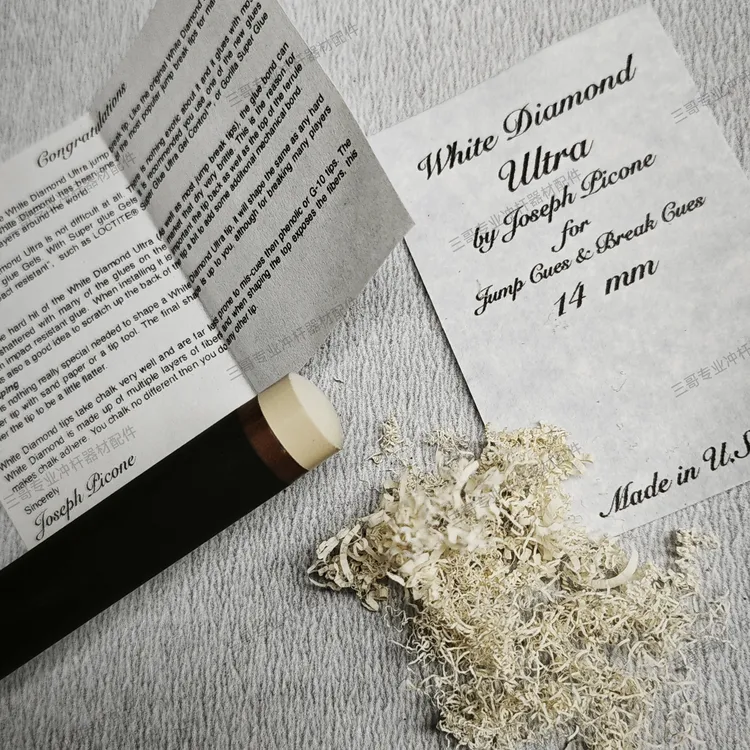 Congratulations
White Diamond Ultra jump
White Diamond has been
players around the world.
Ultra is not difficult at all.
glue Gels. With Super glue Gels
resistant", such as LOCTITE®
hard hit of the White Diamond Ultra
shattered with many of the glues on
impact resistant glue. When installing it
also a good idea to scratch up the back of
nothing really special needed to shape a
tip with sand paper or a lip tool. The final
the tip to be a little flatter.
White Diamond tips take chalk very well and are far
White Diamond is made up of multiple layers of fiber
makes chalk adhere. You chalk no different then you do
Sincerely
Joseph Picone
tip. Like the original White Diamond
most popular jump break tips for
is nothing exotic about it and it glues with
recommended you use one of the new glues
Glue Ultra Gel Control", or Gorilla Super Glue
as most jump break tips), the glue bond can
that are very brittle. This is the reason for
tip back as well as the top of the ferrule
bit to add some additional mechanical bond.
Ultra tip, it will shape the same as any hard
is up to you, although for breaking many players
prone to mis-cues then phenolic or G-10 tips. The
and when shaping the top exposes the fibers, this
other tip.
White Diamond
Ultra
by Joseph Picone
for
Jump Cues & Break Cues
14 mm
Made in U.S
三哥专业冲杆器材配件
三哥专业冲杆器材配件
三哥专业冲杆器材配件
三哥专业冲杆器材配件